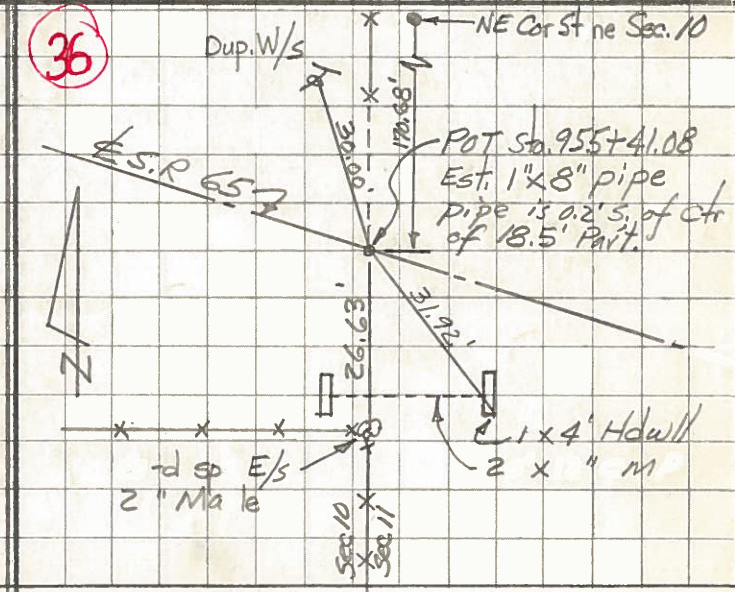 36
NE Cor St ne Sec. 10
Dup. W/s
170.68'
30.00'
POT Sta. 955+41.08
Est. 1"x8" pipe
pipe is 0.2' S. of Ctr
of 18.5' Pav't.
℄ S.R 65
31.92'
26.63'
N
1 x 4' Hdwll
2 x " M
-d sp E/s
2 "Ma le
Sec. 10
Sec. 11